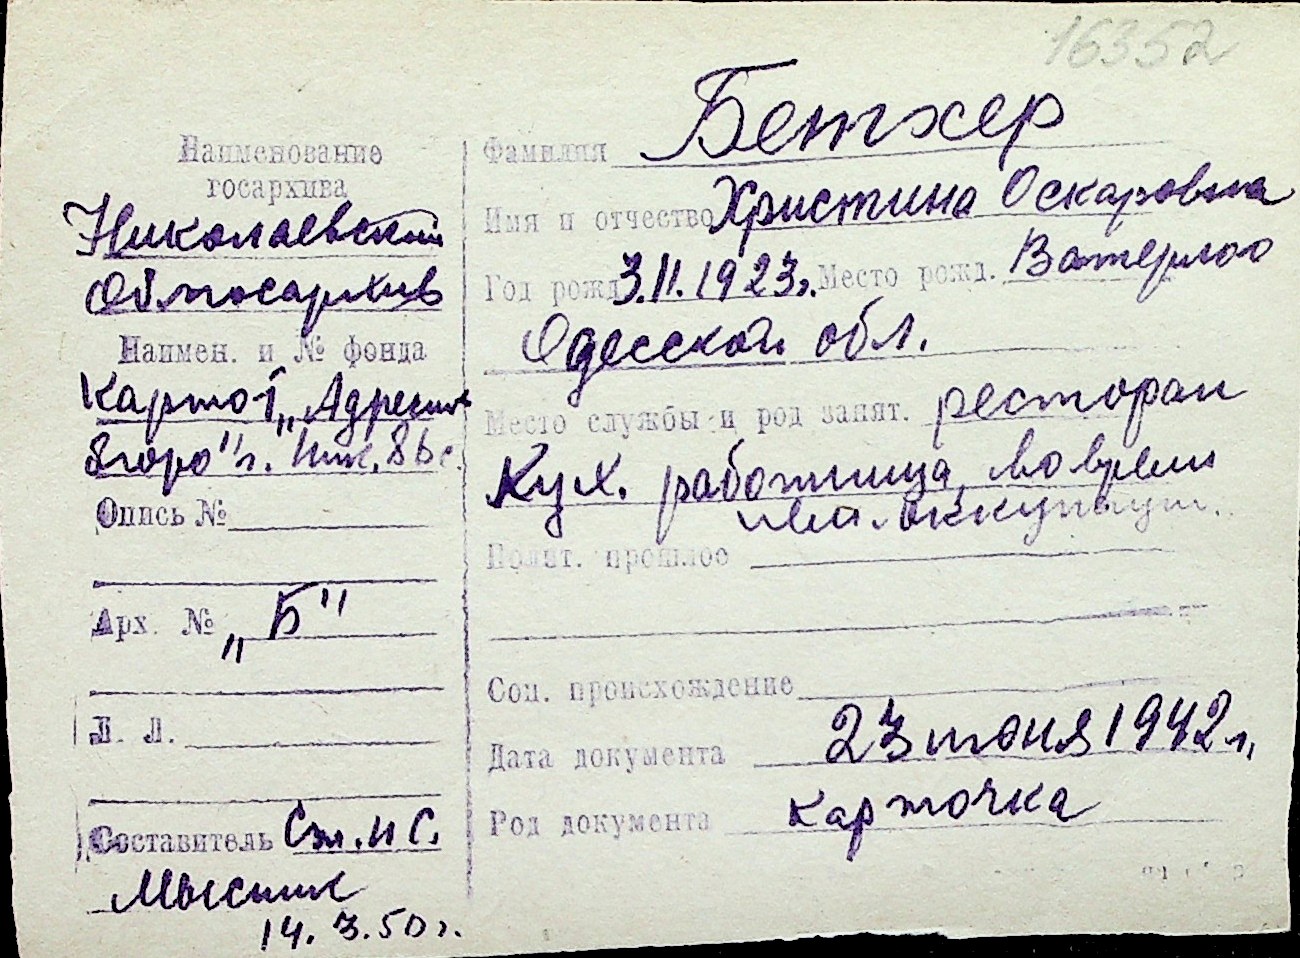 16352
Наименование
госархива
Николаевский
Облгосархив
Наимен. и № фонда
Картот. „Адресн
бюро" г. Ник.
Опись №
Арх. № „Б"
Л. Л.
Составитель Ст. н с.
14.3.50 г.
Фамилия Бетхер
Имя и отчество Христина Оскаровна
Год рожд 3.II.1923г. Место рожд. Ватерлоо
Одесской обл.
Место службы и род занят. ресторан
Кух. работница, во время
нем. оккупации.
Полит. прошлое
Соц. происхождение
Дата документа 23 июня 1942 г.
Род документа карточка